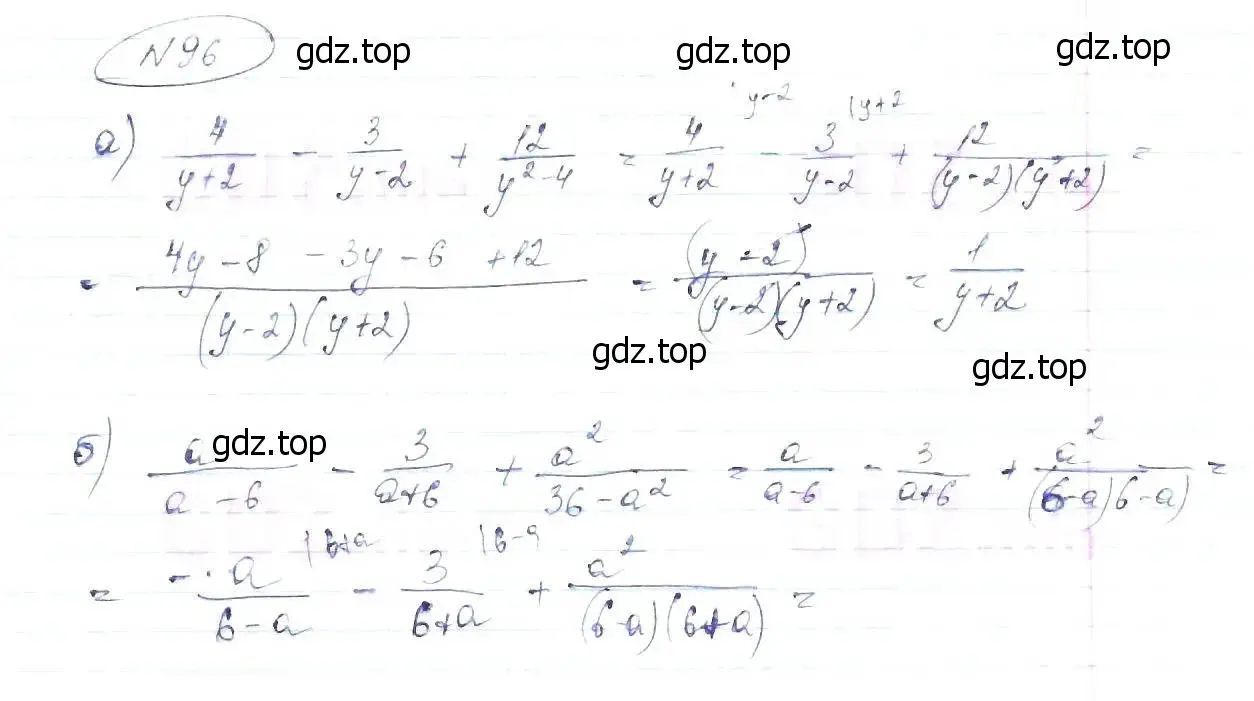 N96 gdz.top gdz.top gdz.top
а) 4/(y+2) - 3/(y-2) + 12/(y²-4) = 4/(y+2) |y-2 - 3/(y-2) |y+2 + 12/((y-2)(y+2)) =
= (4y-8 -3y-6 +12)/((y-2)(y+2)) = (y-2)/((y-2)(y+2)) = 1/(y+2)
gdz.top gdz.top
gdz.top
б) a/(a-6) - 3/(a+6) + a²/(36-a²) = a/(a-6) - 3/(a+6) + a²/((6-a)6-a) =
= -a/(6-a) |6+a - 3/(6+a) |6-a + a²/((6-a)(6+a)) =